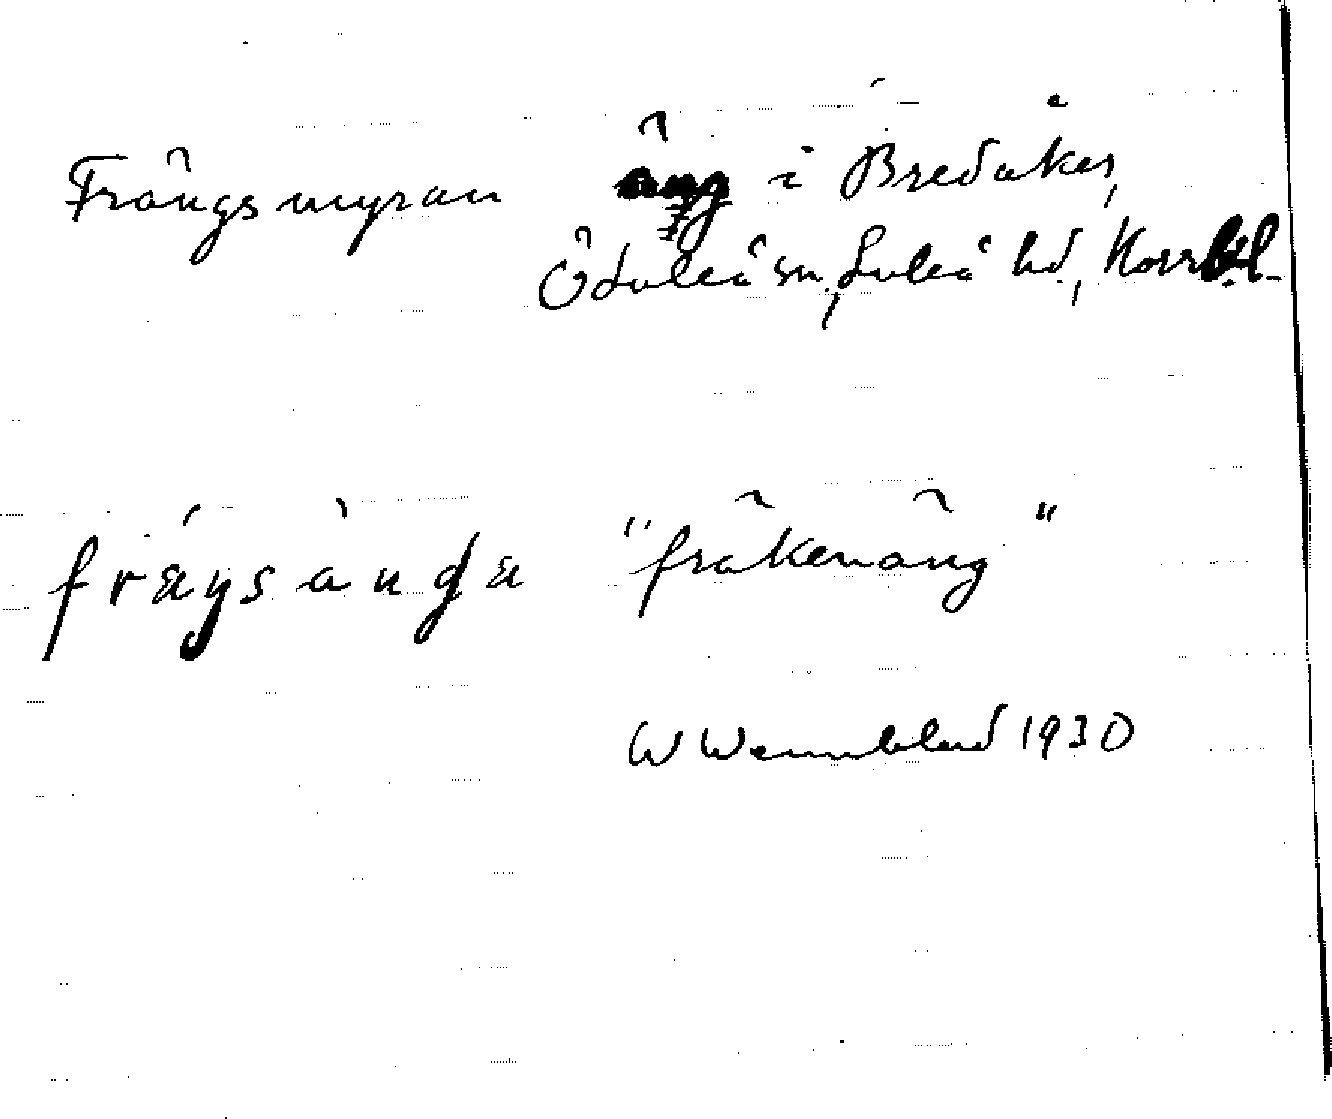 Frängsmyran äng i Bredåker,
Öduleå sn, Luleå hd, Norrb. l.
fräysànga "fräkenäng"
W Wennblad 1930